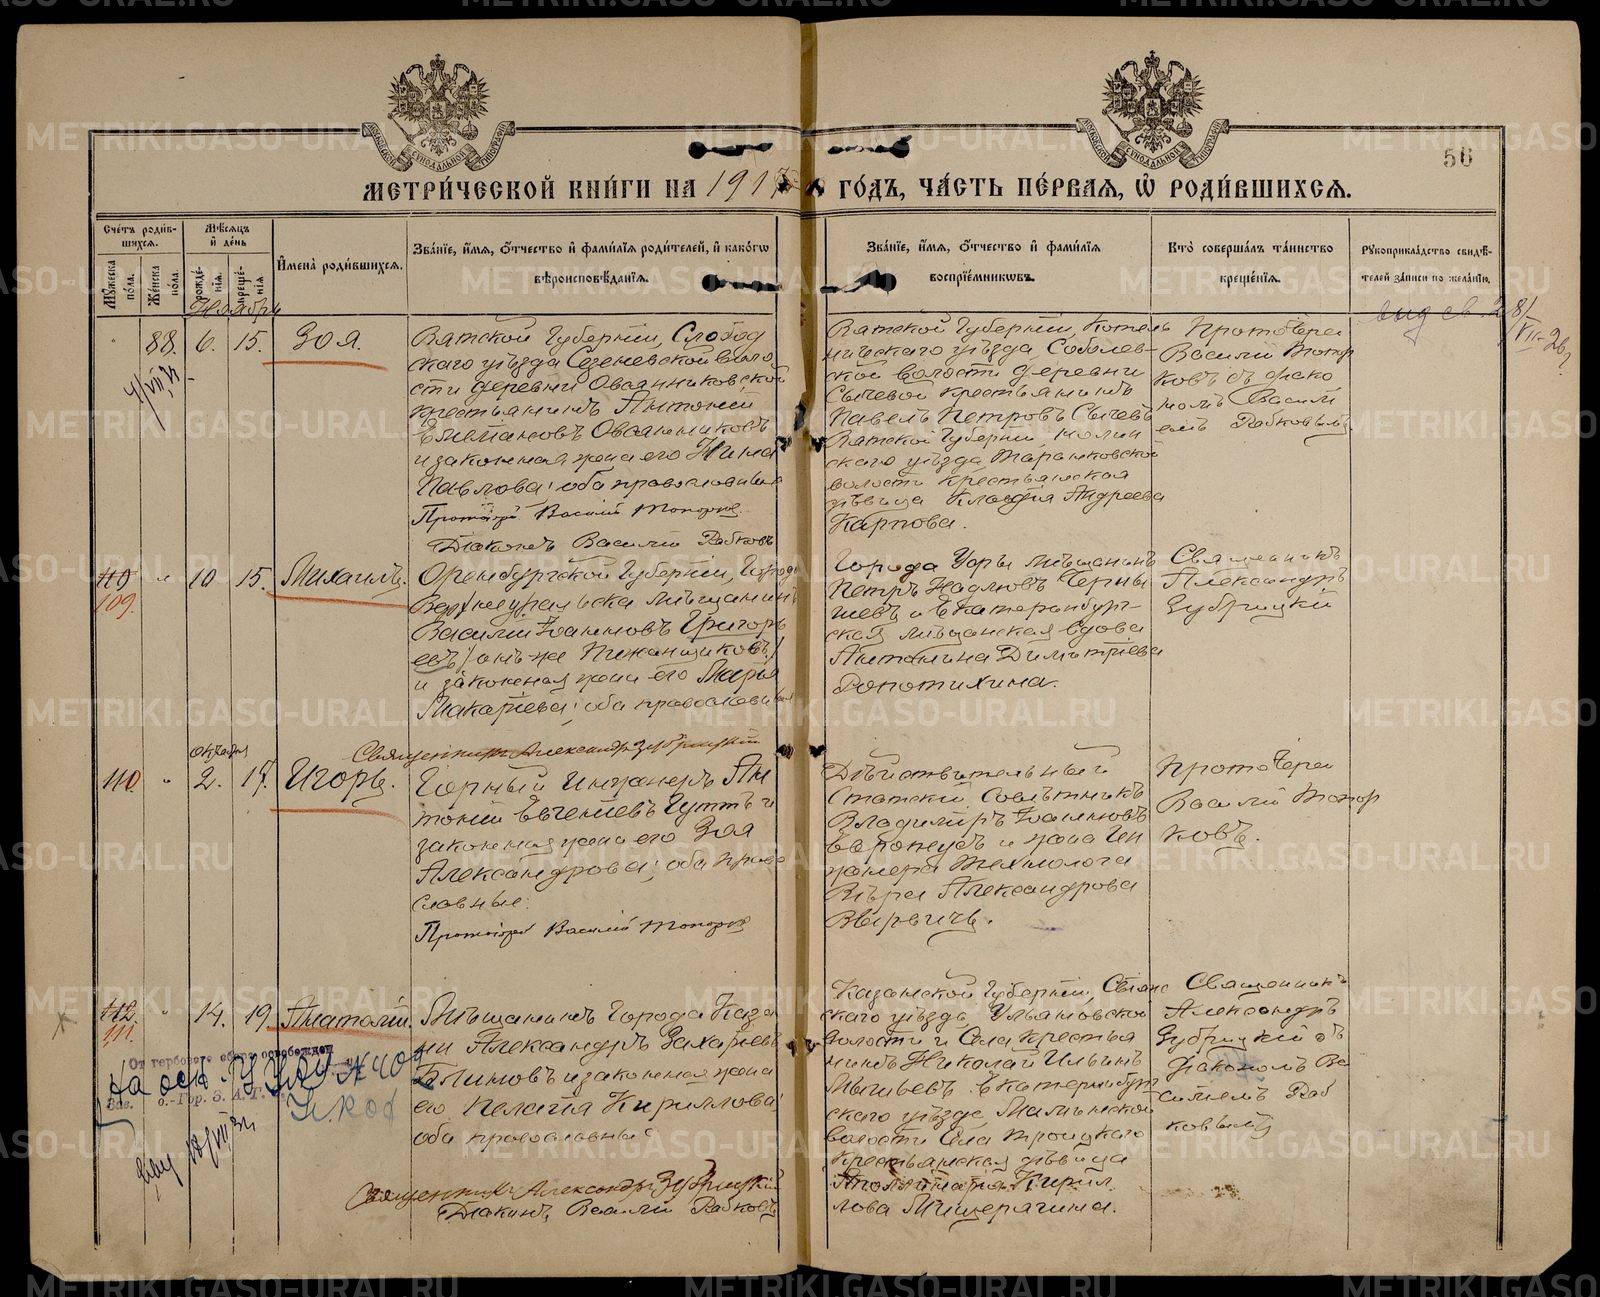 МЕТРИ́ЧЕСКОЙ КНИ́ГИ НА 191 ГО́ДЪ, ЧА́СТЬ ПЕ́РВАЯ, Ѡ РОДИ́ВШИХСЯ.
56
Сче́тъ роди́в-
шихся.
Мѣ́сяцъ
и де́нь
Мꙋжеска по́ла.
Же́нска по́ла.
рожде́-
нія.
креще́-
нія
Имена̀ роди́вшихся.
Зва́ніе, и́мя, о́тчество и фами́лія роди́телей, и како́гѡ
вѣроисповѣ́данія.
Зва́ніе, и́мя, о́тчество и фами́лія
воспріе́мниковъ.
Кто̀ соверша́лъ та́инство
креще́нія.
Рꙋкоприкла́дство свидѣ́-
телей за́писи по жела́нію.
Ноябрь
88. 6. 15. Зоя.
Вятской Губерніи, Слобод
скаго уѣзда Сезеневской воло
сти деревни Овсянниковской
крестьянинъ Антоній
Овсянниковъ
и законная жена его Нина
Павлова; оба православные
Протоіерей Василій Топорков
Діаконъ Василій Рабковъ
Вятской Губерніи, Котель
ничскаго уѣзда, Соболев-
ской волости деревни
Сычевой крестьянинъ
Павелъ Петровъ Сычевъ
Вятской Губерніи, Нолин
скаго уѣзда Таранковской
волости крестьянская
дѣвица Клавдія Андреева
Карпова.
Протоіерей
Василій Топор
ковъ съ діако
номъ Васили
емъ Рабковымъ
110 " 10 15. Михаилъ.
109.
Оренбургской Губерніи, Города
Верхнеуральска мѣщанинъ
Василій Іоанновъ Григорь
евъ /онъ-же Пижанщиковъ/
и законная жена его Марія
Макаріева; оба православные
Священникъ Александръ Зубрицкій
Города Уфы мѣщанинъ
Петръ Черны
шевъ и Екатеринбург-
ская мѣщанская вдова
Антонина Димитріева
Ропотихина.
Священникъ
Александръ
Зубрицкій
октября
110 " 2. 17. Игорь.
Горный Инженеръ Ан
тоній Евгеніевъ Гуттъ и
законная жена его Зоя
Александрова; оба право
славные.
Протоіерей Василій Топорков
Дѣйствительный
Статскій Совѣтникъ
Владиміръ Іоанновъ
и жена Ин
женера Технолога
Вѣра Александрова
Протоіерей
Василій Топор
ковъ.
112. " 14. 19. Анатолій.
111.
Мѣщанинъ Города Каза
ни Александръ Захаріевъ
Блиновъ и законная жена
его Пелагія Кириллова;
оба православные
Священникъ Александръ Зубрицкій
Діаконъ Василій Рабковъ
Казанской Губерніи, Свіяж
скаго уѣзда, Ульяновской
волости и села крестья
нинъ Николай Ильинъ
Екатеринбург
скаго уѣзда, Маминской
волости Села Троицкаго
крестьянская дѣвица
Кирил
лова Мищерягина.
Священникъ
Александръ
Зубрицкій съ
діакономъ Ва
силіемъ Раб
ковымъ
От гербового сбора освобожден